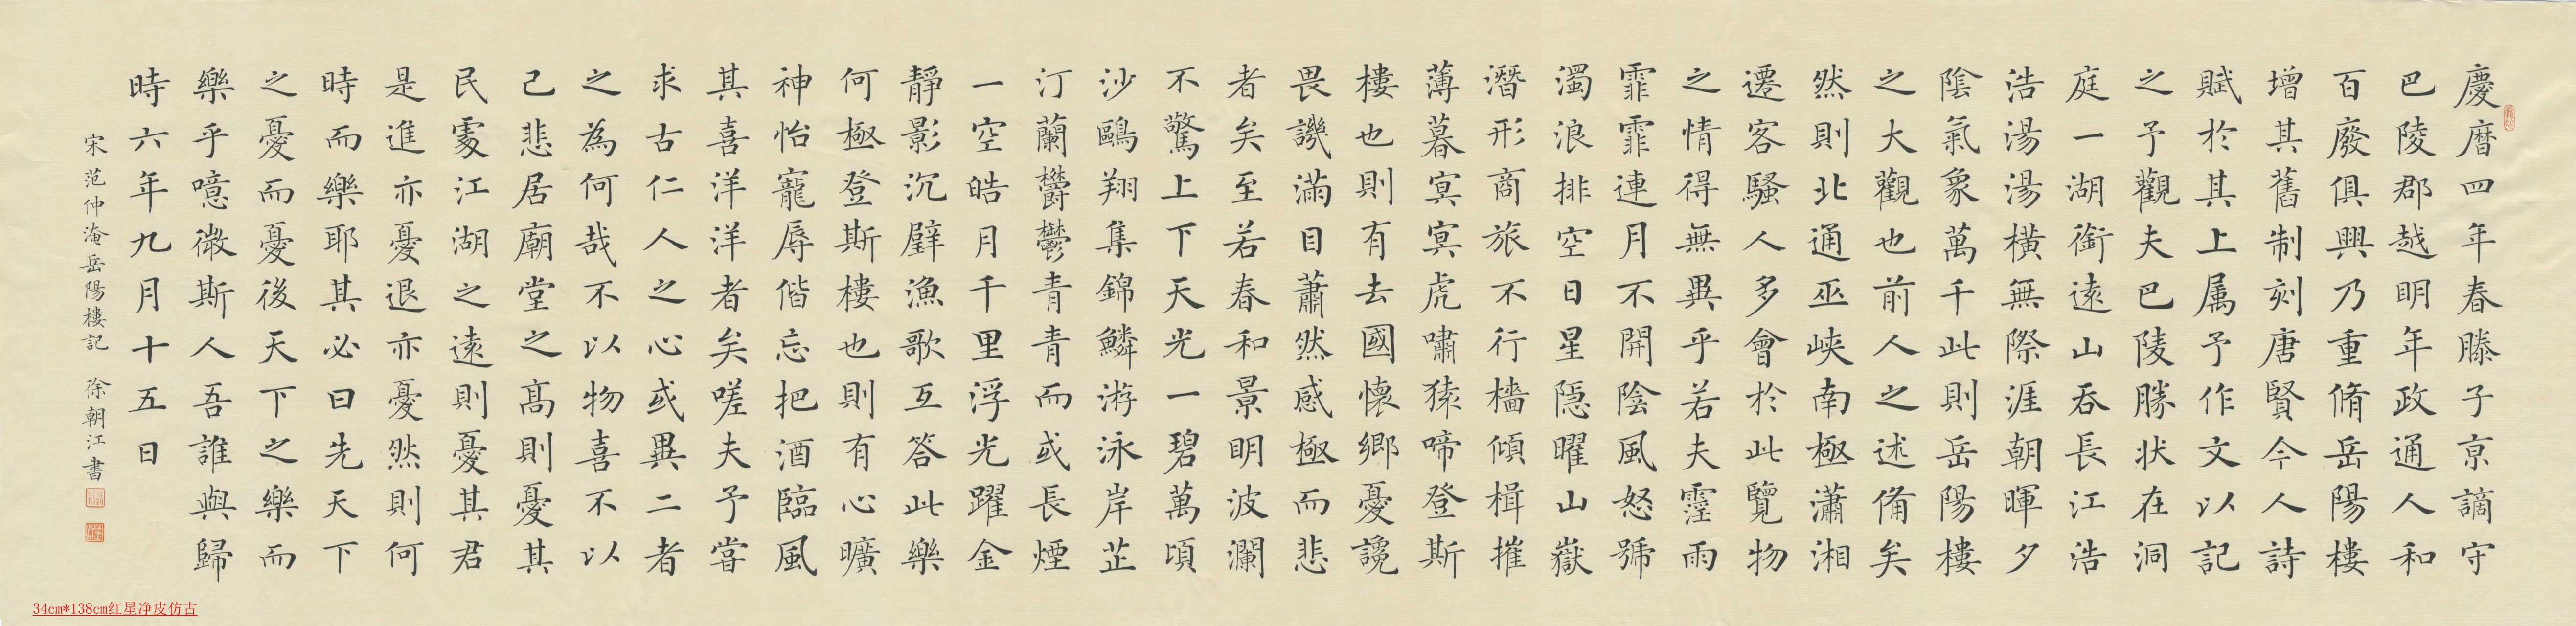 慶暦四年春滕子亰謫守
巴陵郡越明年政通人和
百廢俱興乃重脩岳陽樓
增其舊制刻唐賢今人詩
賦於其上属予作文以記
之予觀夫巴陵勝状在洞
庭一湖銜遠山吞長江浩
浩湯湯橫無際涯朝暉夕
陰氣象萬千此則岳陽樓
之大觀也前人之述備矣
然則北通巫峽南極瀟湘
遷客騷人多會於此覽物
之情得無異乎若夫霪雨
霏霏連月不開陰風怒號
濁浪排空日星隱曜山嶽
潛形商旅不行檣傾楫摧
薄暮冥冥虎嘯猿啼登斯
樓也則有去國懷鄉憂讒
畏譏滿目蕭然感極而悲
者矣至若春和景明波瀾
不驚上下天光一碧萬頃
沙鷗翔集錦鱗游泳岸芷
汀蘭欝欝青青而或長煙
一空皓月千里浮光躍金
靜影沉璧漁歌互答此樂
何極登斯樓也則有心曠
神怡寵辱偕忘把酒臨風
其喜洋洋者矣嗟夫予甞
求古仁人之心或異二者
之為何哉不以物喜不以
己悲居廟堂之髙則憂其
民處江湖之遠則憂其君
是進亦憂退亦憂然則何
時而樂耶其必曰先天下
之憂而憂後天下之樂而
樂乎噫微斯人吾誰與歸
時六年九月十五日
宋范仲淹岳陽樓記 徐朝江書
34cm*138cm红星净皮仿古